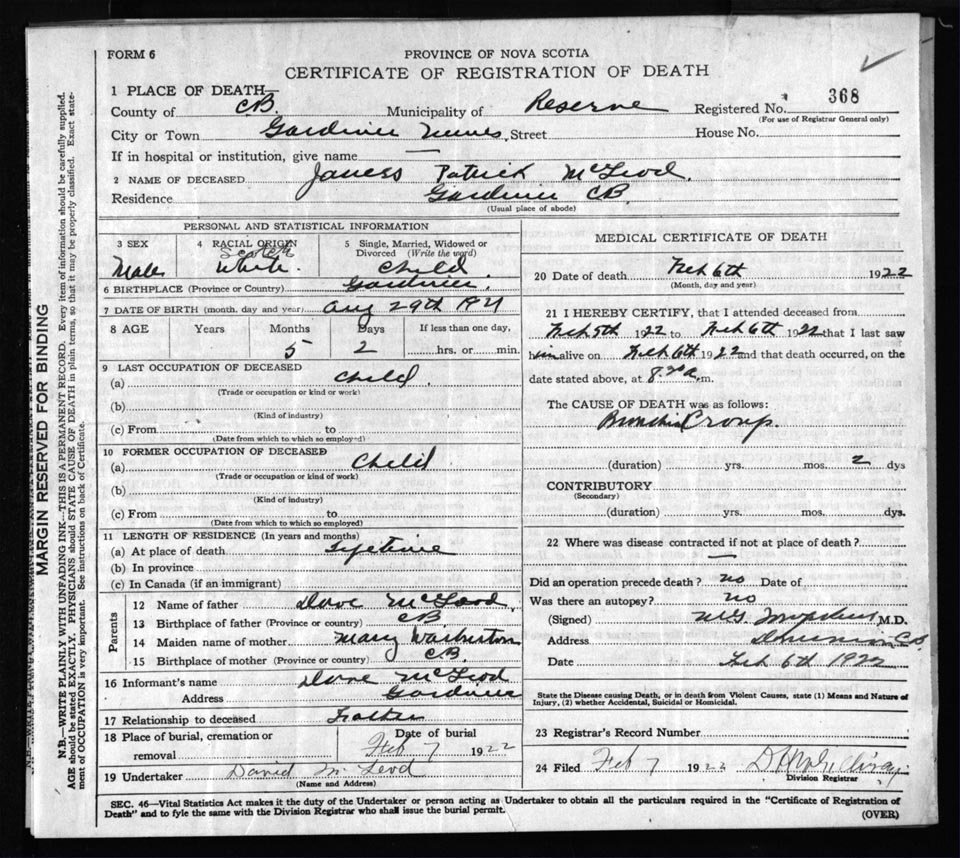 FORM 6
PROVINCE OF NOVA SCOTIA
CERTIFICATE OF REGISTRATION OF DEATH
1 PLACE OF DEATH—
County of C.B. Municipality of Reserve Registered No. 368
(For use of Registrar General only)
City or Town Gardiner Mines Street House No.
If in hospital or institution, give name —
2 NAME OF DECEASED Patrick McLeod.
Residence Gardiner CB.
(Usual place of abode)
PERSONAL AND STATISTICAL INFORMATION
3 SEX
Male
4 RACIAL ORIGIN
Scotch
White.
5 Single, Married, Widowed or Divorced (Write the word)
Child
6 BIRTHPLACE (Province or Country) Gardiner.
7 DATE OF BIRTH (month, day and year) Aug 29th 1921
8 AGE Years Months Days If less than one day,
5 2 hrs. or min.
9 LAST OCCUPATION OF DECEASED
(a) Child.
(Trade or occupation or kind or work)
(b)
(Kind of industry)
(c) From to
(Date from which to which so employed)
10 FORMER OCCUPATION OF DECEASED
(a) Child
(Trade or occupation or kind of work)
(b)
(Kind of industry)
(c) From to
(Date from which to which so employed)
11 LENGTH OF RESIDENCE (In years and months)
(a) At place of death Lifetime
(b) In province
(c) In Canada (if an immigrant)
Parents
12 Name of father Dave McLeod.
13 Birthplace of father (Province or country) CB.
14 Maiden name of mother Mary Warburton
15 Birthplace of mother (Province or country) CB
16 Informant's name Dave McLeod
Address Gardiner
17 Relationship to deceased Father
18 Place of burial, cremation or removal
Date of burial
Feb 7 1922
19 Undertaker David McLeod
(Name and Address)
MEDICAL CERTIFICATE OF DEATH
20 Date of death Feb 6th 1922
(Month, day and year)
21 I HEREBY CERTIFY, that I attended deceased from
Feb 5th 1922 to Feb 6th 1922 that I last saw
him alive on Feb 6th 1922 and that death occurred, on the
date stated above, at 8.30 a.m.
The CAUSE OF DEATH was as follows:
Bronchial Croup.
(duration) yrs. mos. 2 dys
CONTRIBUTORY
(Secondary)
(duration) yrs. mos. dys.
22 Where was disease contracted if not at place of death?
—
Did an operation precede death? no Date of
Was there an autopsy? no
(Signed) M.D.
Address C.B.
Date Feb 6th 1922
State the Disease causing Death, or in death from Violent Causes, state (1) Means and Nature of
Injury, (2) whether Accidental, Suicidal or Homicidal.
23 Registrar's Record Number
24 Filed Feb 7 1922
Division Registrar
SEC. 46—Vital Statistics Act makes it the duty of the Undertaker or person acting as Undertaker to obtain all the particulars required in the "Certificate of Registration of
Death" and to fyle the same with the Division Registrar who shall issue the burial permit. (OVER)
MARGIN RESERVED FOR BINDING
N.B.—WRITE PLAINLY WITH UNFADING INK—THIS IS A PERMANENT RECORD. Every item of information should be carefully supplied.
AGE should be stated EXACTLY. PHYSICIANS should STATE CAUSE OF DEATH in plain terms, so that it may be properly classified. Exact state-
ment of OCCUPATION is very important. See instructions on back of Certificate.